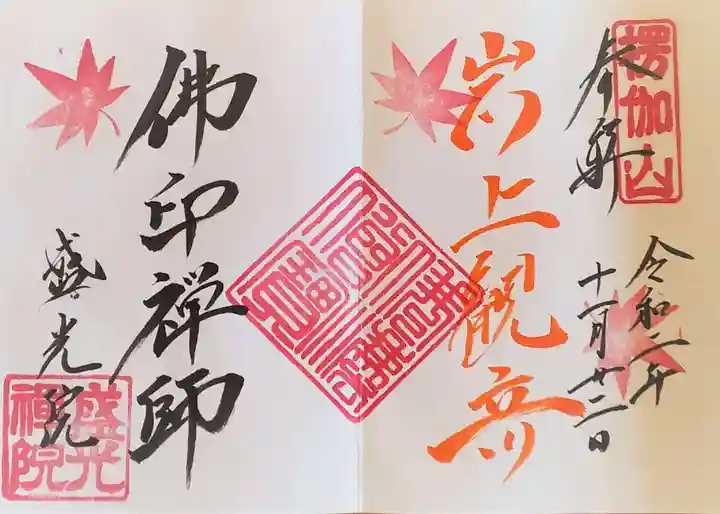 楞伽山
奉拝
令和二年
十一月廿二日
岩上観音
佛印禅師
盛光院
盛光
禅院